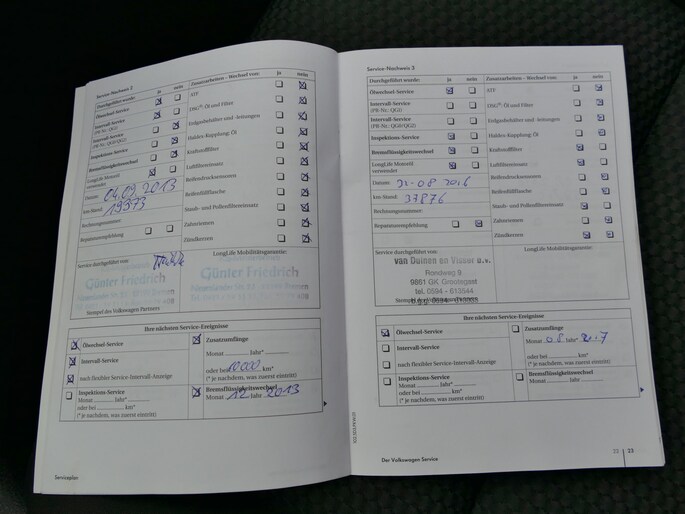 Service-Nachweis 2
Durchgeführt wurde: ja nein
Ölwechsel-Service
Intervall-Service
(PR-Nr.: QG1)
Intervall-Service
(PR-Nr.: QG0/QG2)
Inspektions-Service
Bremsflüssigkeitswechsel
LongLife Motoröl
verwendet
Datum: 04.09.2013
km-Stand: 19973
Rechnungsnummer:
Reparaturempfehlung
Zusatzarbeiten – Wechsel von: ja nein
ATF
DSG®: Öl und Filter
Erdgasbehälter und -leitungen
Haldex-Kupplung: Öl
Kraftstofffilter
Luftfiltereinsatz
Reifendrucksensoren
Reifenfüllflasche
Staub- und Pollenfiltereinsatz
Zahnriemen
Zündkerzen
Service durchgeführt von:
Günter Friedrich
Stempel des Volkswagen Partners
LongLife Mobilitätsgarantie:
Ihre nächsten Service-Ereignisse
Ölwechsel-Service
Intervall-Service
nach flexibler Service-Intervall-Anzeige
Inspektions-Service
Monat Jahr*
oder bei km*
(* je nachdem, was zuerst eintritt)
Zusatzumfänge
Monat Jahr*
oder bei 10000 km*
(* je nachdem, was zuerst eintritt)
Bremsflüssigkeitswechsel
Monat 12 Jahr 2013
Serviceplan
Service-Nachweis 3
Durchgeführt wurde: ja nein
Ölwechsel-Service
Intervall-Service
(PR-Nr.: QG1)
Intervall-Service
(PR-Nr.: QG0/QG2)
Inspektions-Service
Bremsflüssigkeitswechsel
LongLife Motoröl
verwendet
Datum: 31-08 2016
km-Stand: 37876
Rechnungsnummer:
Reparaturempfehlung
Zusatzarbeiten – Wechsel von: ja nein
ATF
DSG®: Öl und Filter
Erdgasbehälter und -leitungen
Haldex-Kupplung: Öl
Kraftstofffilter
Luftfiltereinsatz
Reifendrucksensoren
Reifenfüllflasche
Staub- und Pollenfiltereinsatz
Zahnriemen
Zündkerzen
Service durchgeführt von:
van Duinen en Visser
Rondweg 9
9861 GK Grootegast
tel. 0594 - 613544
Stempel des Volkswagen Partners
LongLife Mobilitätsgarantie:
Ihre nächsten Service-Ereignisse
Ölwechsel-Service
Intervall-Service
nach flexibler Service-Intervall-Anzeige
Inspektions-Service
Monat Jahr*
oder bei km*
(* je nachdem, was zuerst eintritt)
Zusatzumfänge
Monat 08 Jahr* 2017
oder bei km*
(* je nachdem, was zuerst eintritt)
Bremsflüssigkeitswechsel
Monat Jahr
Der Volkswagen Service
22 23